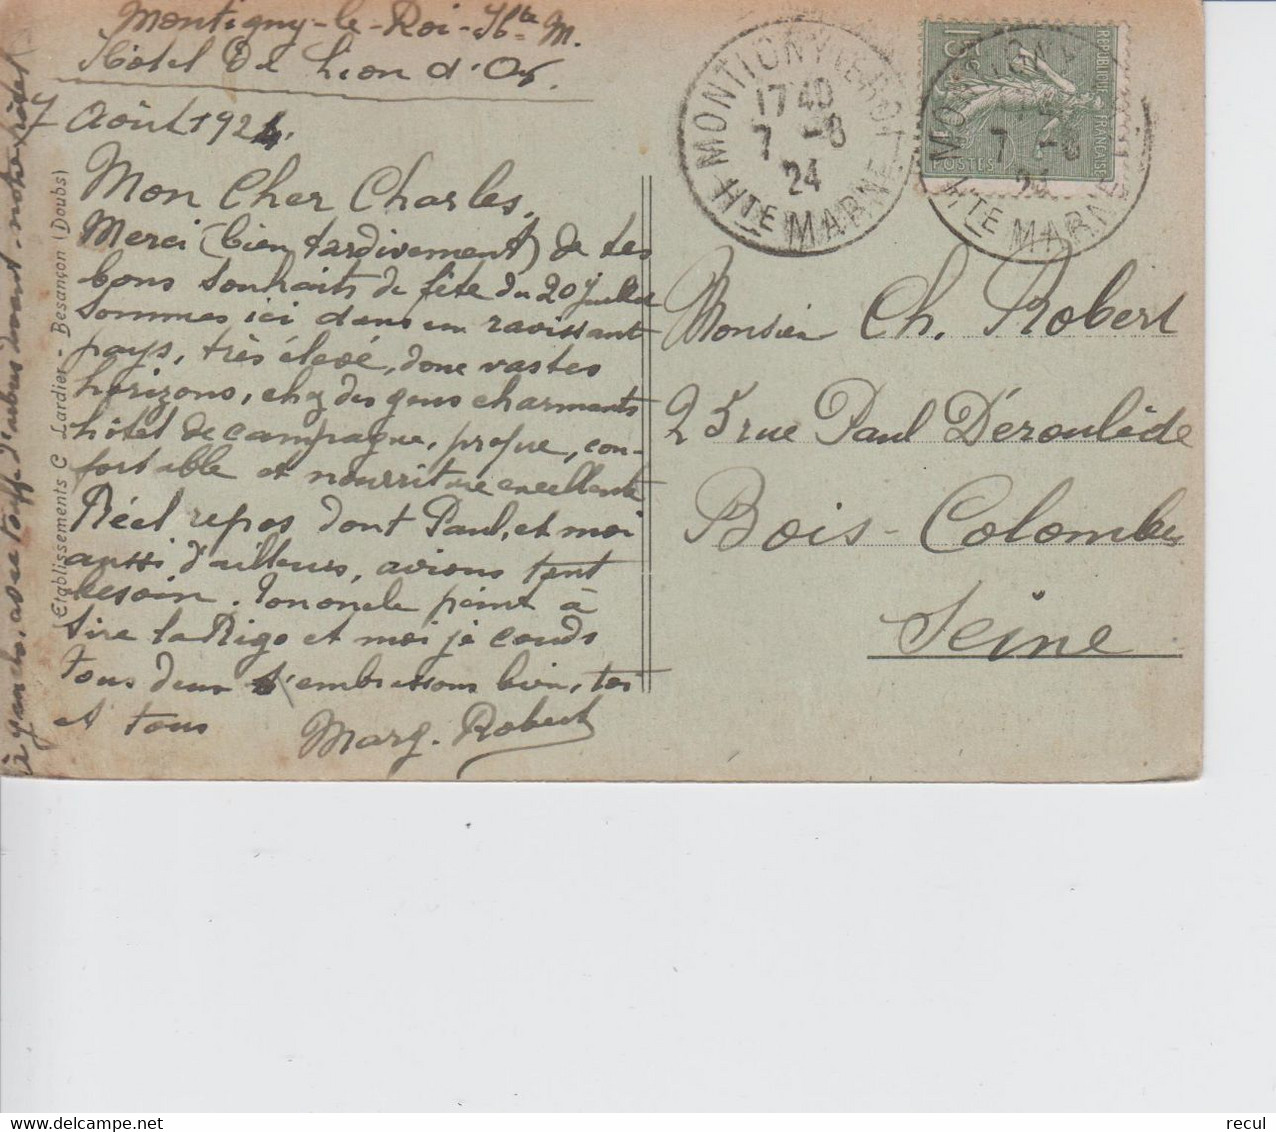 Montigny-le-Roi-Hte M.
Hôtel De Lion d'Or.
7 Août 1924.
Mon Cher Charles,
Merci (bien tardivement) de tes
bons souhaits de fête du 20 juillet
Sommes ici dans un ravissant
pays, très élevé, donc vastes
horizons, chez des gens charmants
hôtel de campagne, propre, con-
fortable et nourriture excellente
Réel repos dont Paul, et moi
aussi d'ailleurs, avions tant
besoin. Ton oncle peint à
et moi je couds
Tous deux t'embrassons bien, toi
et tous
Marg. Robert
d'arbres devant notre hôtel
Etablissements C Lardier - Besançon (Doubs)
MONTIGNY-LE-ROI
17 40
7 -8
24
HTE MARNE
REPUBLIQUE FRANÇAISE
15c
POSTES
7 -8
24
HTE MARNE
Monsieur Ch. Robert
25 rue Paul Déroulède
Bois-Colombes
Seine
recul